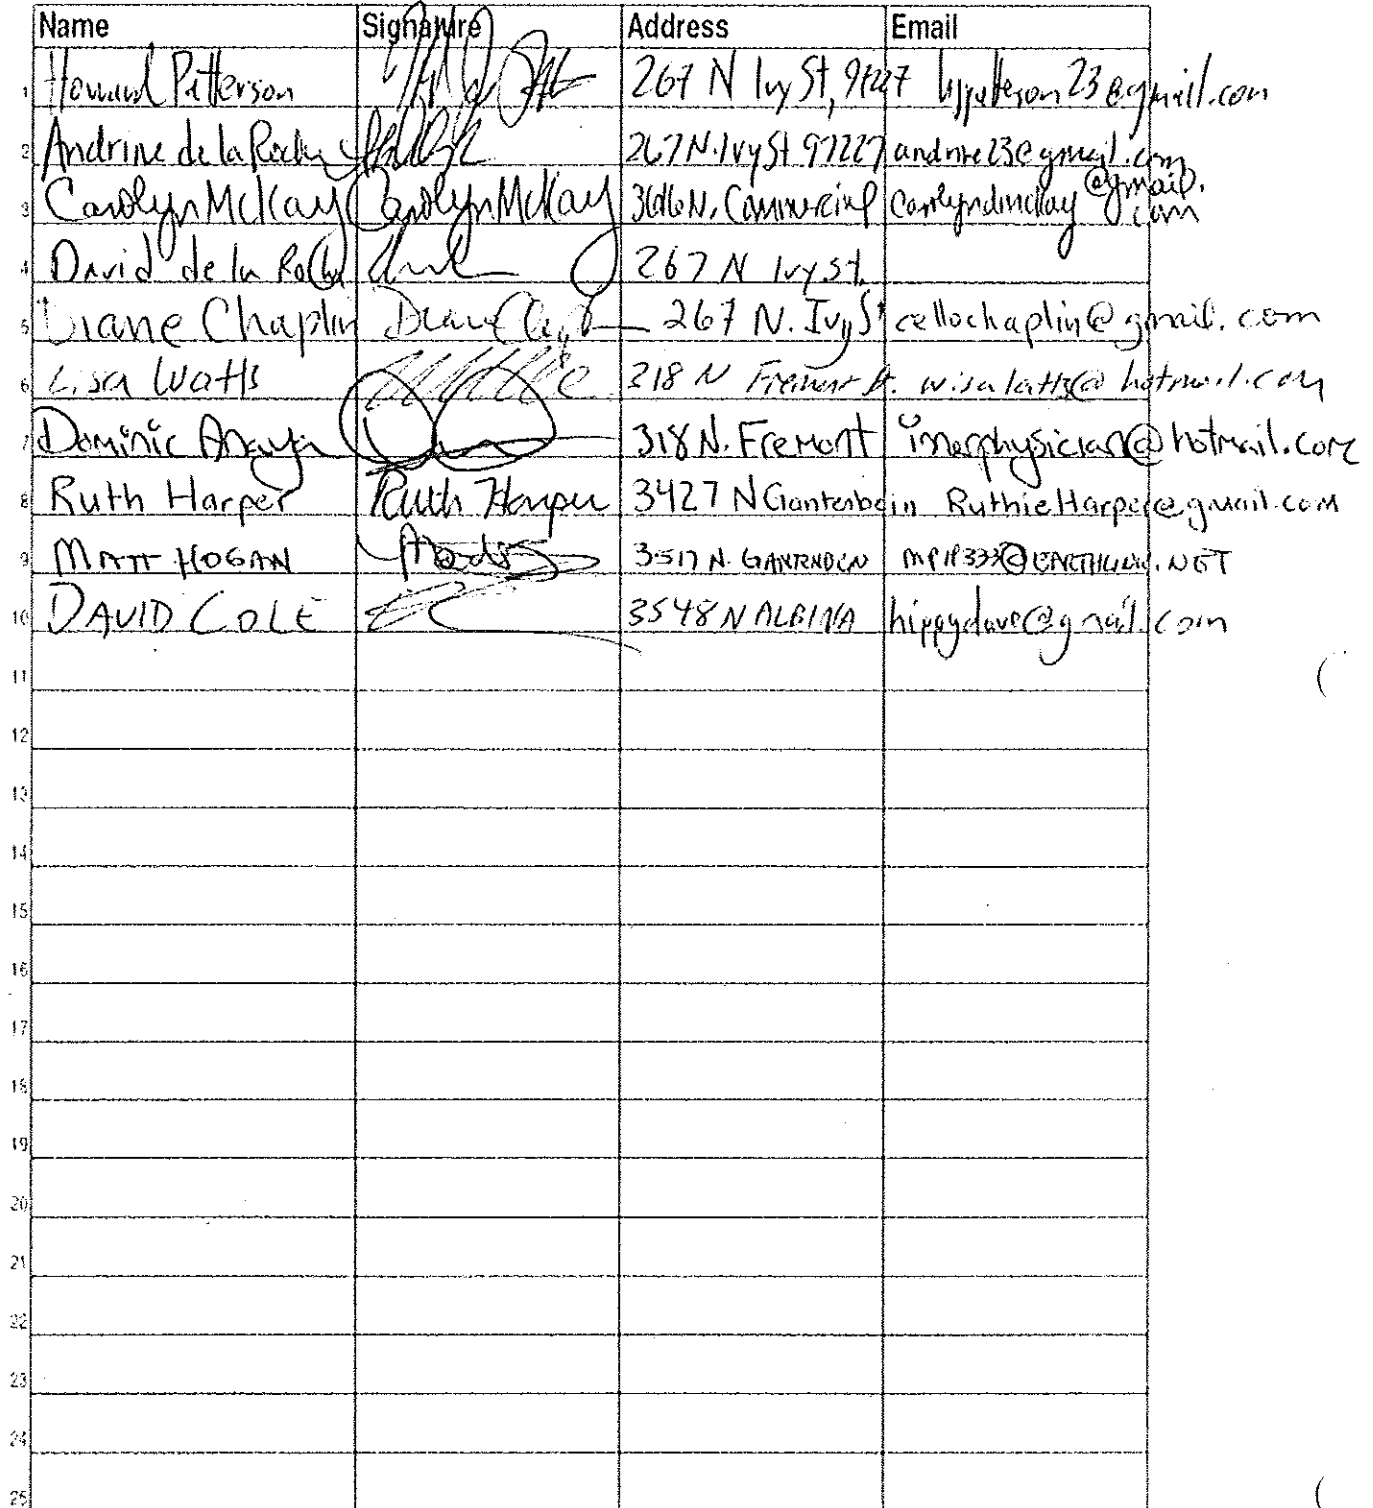 Name Signature Address Email
1 Howard Patterson 267 N Ivy St, 97227 hjpatterson23@gmail.com
2 Andrine de la Rocha 267 N. Ivy St 97227 andrine23@gmail.com
3 Carolyn McKay Carolyn McKay 3616 N. Commercial carolyndmckay@gmail.com
4 David de la Rocha 267 N Ivy St.
5 Diane Chaplin 267 N. Ivy St cellochaplin@gmail.com
6 Lisa Watts 318 N Fremont St. wisalatts@hotmail.com
7 Dominic Anaya 318 N. Fremont innerphysician@hotmail.com
8 Ruth Harper Ruth Harper 3427 N Gantenbein RuthieHarper@gmail.com
9 MATT HOGAN 3517 N. GANTENBEIN @EARTHLINK.NET
10 DAVID COLE 3548 N ALBINA hippydave@gmail.com
11
12
13
14
15
16
17
18
19
20
21
22
23
24
25